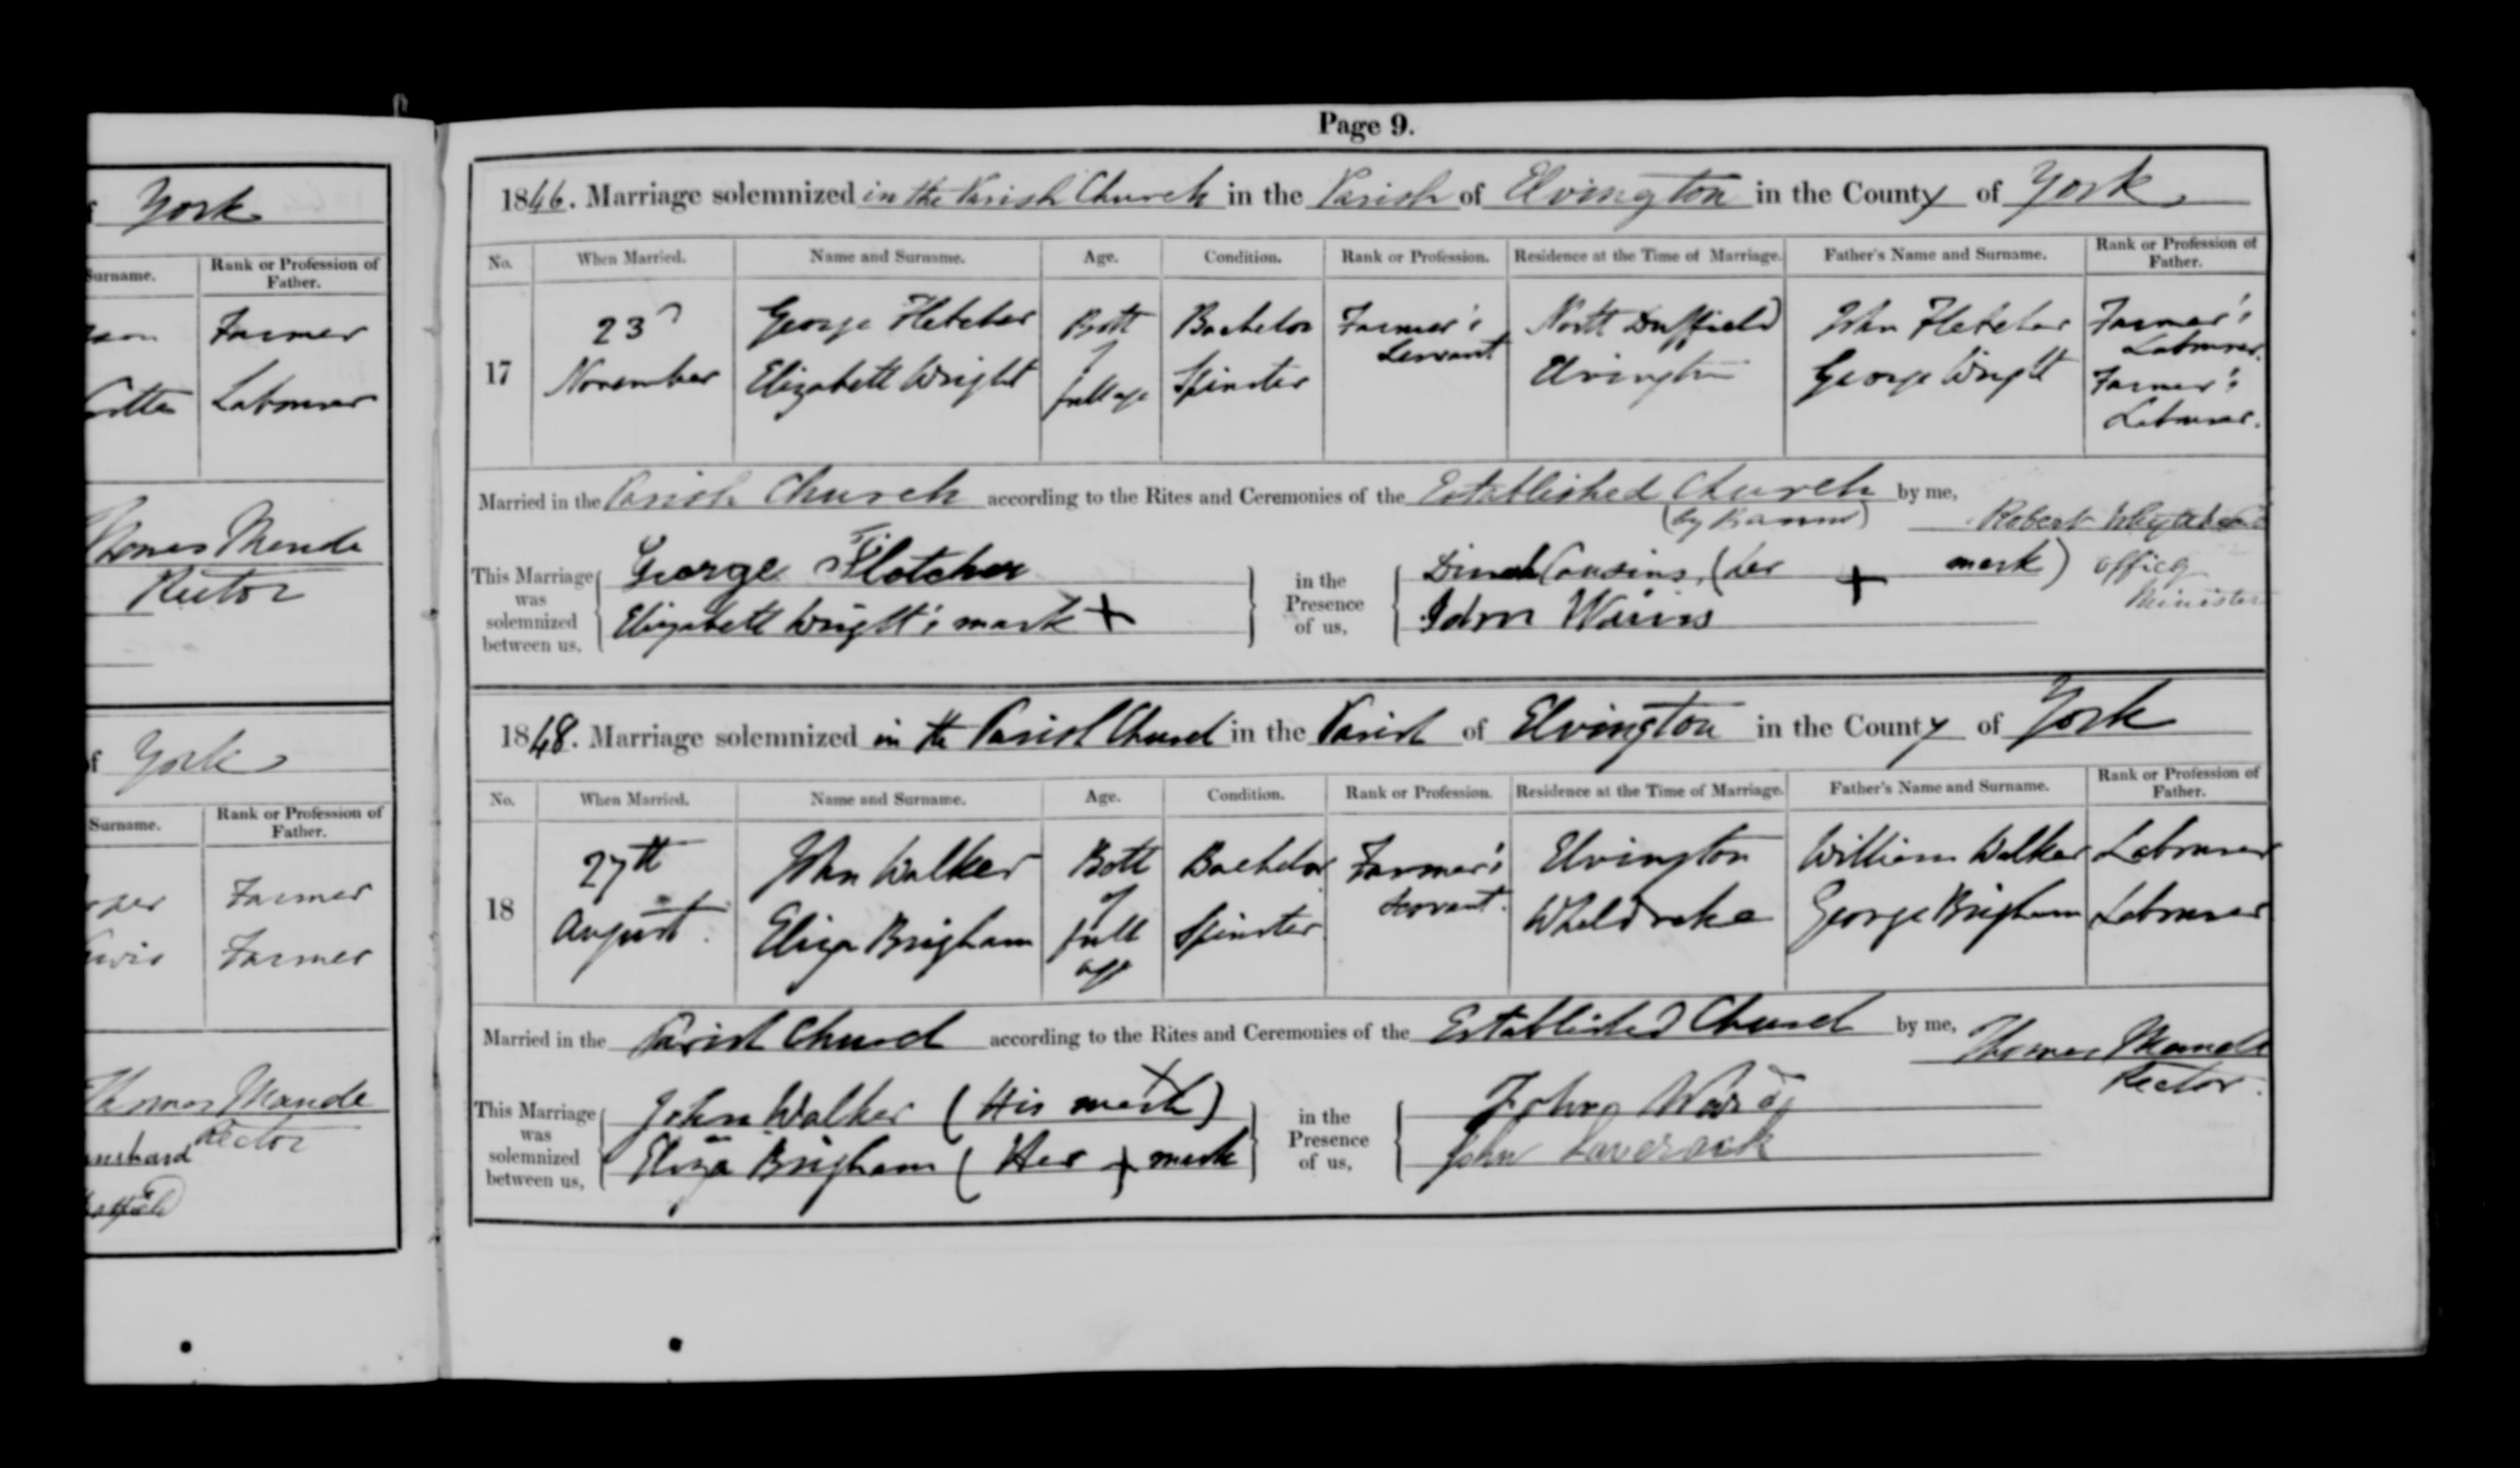 York
Surname. Rank or Profession of Father.
Farmer
Labourer
Thomas Maude
Rector
of York
Surname. Rank or Profession of Father.
Farmer
Farmer
Thomas Maude
Rector
Page 9.
1846. Marriage solemnized in the Parish Church in the Parish of Elvington in the County of York
No. When Married. Name and Surname. Age. Condition. Rank or Profession. Residence at the Time of Marriage. Father's Name and Surname. Rank or Profession of Father.
17 23d November George Fletcher Both of full age Bachelor Farmer's Servant North Duffield John Fletcher Farmer's Labourer.
Elizabeth Wright Spinster Elvington George Wright Farmer's Labourer.
Married in the Parish Church according to the Rites and Ceremonies of the Established Church by me,
(by Banns) Robert
This Marriage was solemnized between us, George Fletcher in the Presence of us, Dinah Cousins, (her + mark) Officg Minister
Elizabeth Wright's mark +
1848. Marriage solemnized in the Parish Church in the Parish of Elvington in the County of York
No. When Married. Name and Surname. Age. Condition. Rank or Profession. Residence at the Time of Marriage. Father's Name and Surname. Rank or Profession of Father.
18 27th August. John Walker Both of full age Bachelor Farmer's Servant. Elvington William Walker Labourer
Eliza Brigham Spinster Wheldrake George Brigham Labourer
Married in the Parish Church according to the Rites and Ceremonies of the Established Church by me, Thomas Maude
Rector.
This Marriage was solemnized between us, John Walker (His X mark) in the Presence of us, John Ward
Eliza Brigham (Her + mark John Laverack